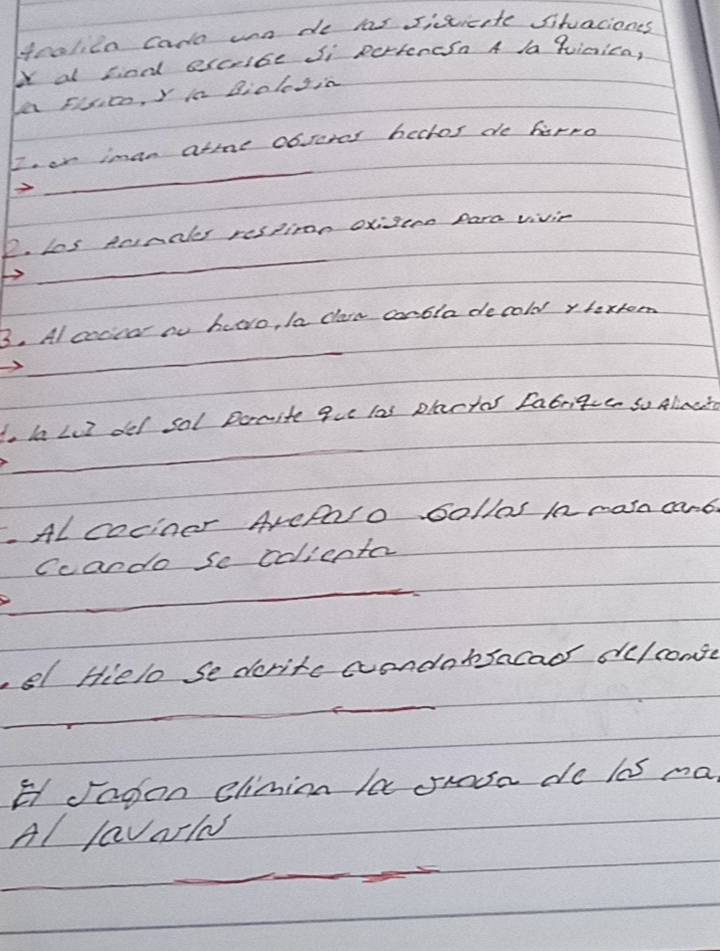 Analiza cada una de las siguiente situaciones
Y al final escribe si pertenesa A la Quimica,
la Fisica, Y la Biologia
1. un iman atrae objetos hechos de hierro
2. los Animales respiran oxigeno para vivir
3. Al cocinar un huevo, la clara cambia de color y textura
la Luz del sol permite que las plantas fabriquen su Alimento
. AL cocinar Arepas o bollos la masa camb
Cuando se calienta
. el Hielo se derite cuando sacaos del conge
El Jabon elimina la grasa de las ma
Al lavarlas